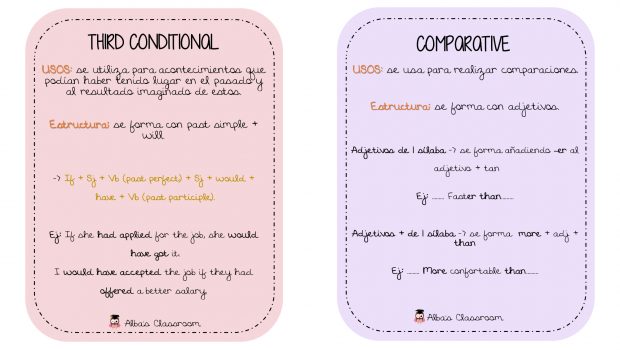 THIRD CONDITIONAL
USOS: se utiliza para acontecimientos que
podían haber tenido lugar en el pasado y
al resultado imaginado de estos.
Estructura: se forma con past simple +
will
-> If + Sj + Vb (past perfect) + Sj + would +
have + Vb (past participle).
Ej: If she had applied for the job, she would
have got it.
I would have accepted the job if they had
offered a better salary.
Alba's Classroom
COMPARATIVE
USOS: se usa para realizar comparaciones.
Estructura: se forma con adjetivos.
Adjetivos de 1 sílaba -> se forma añadiendo -er al
adjetivo + tan
Ej: ....... Faster than.......
Adjetivos + de 1 sílaba -> se forma more + adj +
than
Ej: ....... More confortable than.......
Alba's Classroom